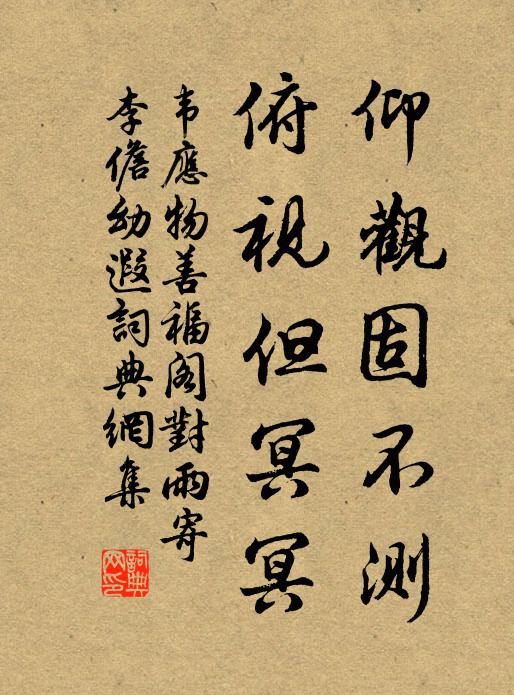 仰觀固不測
俯視但冥冥
韦應物善福阁對雨寄
李儋幼遐詞典網集
詞典
网印